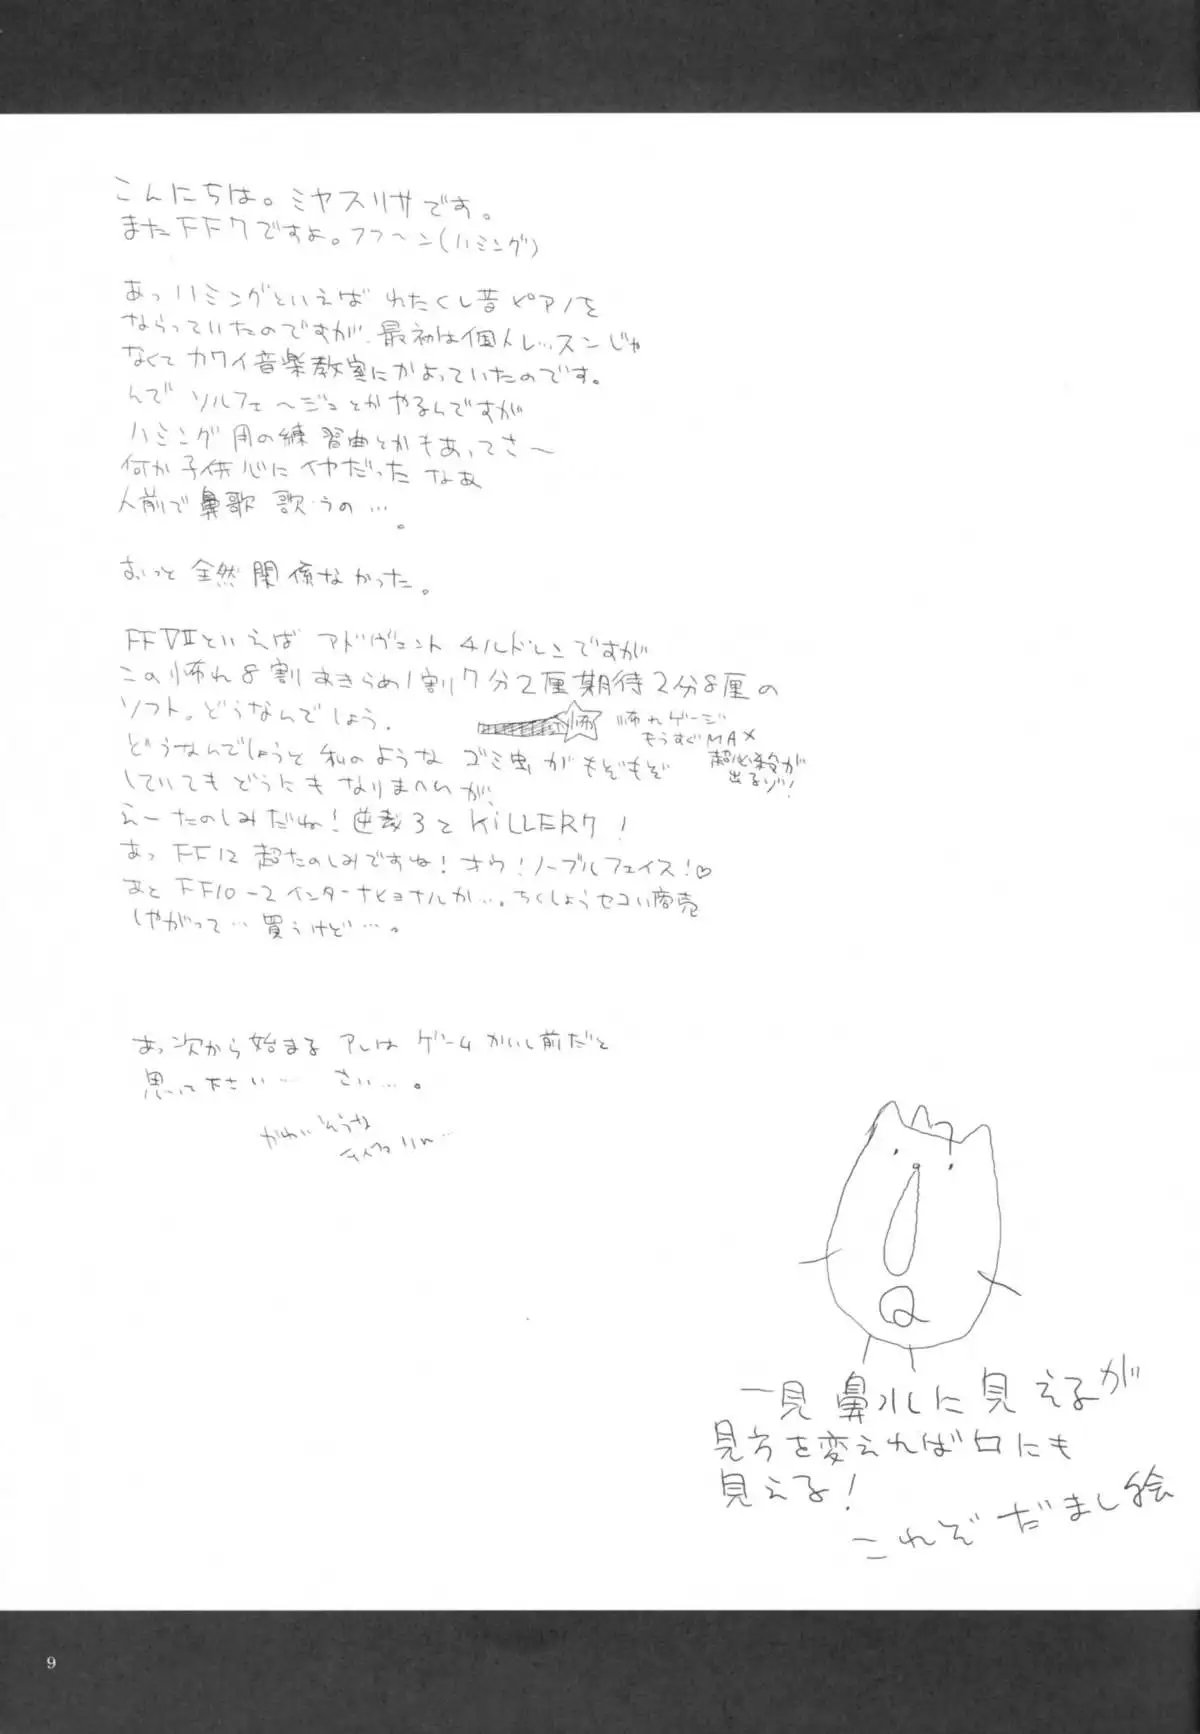 こんにちは。ミヤスリサです。
またFF7ですよ。フフ〜ン(ハミング)
あっハミングといえば わたくし昔ピアノを
ならっていたのですが、最初は個人レッスンじゃ
なくてカワイ音楽教室にかよっていたのです。
んで ソルフェ〜ジュとかやるんですが
ハミング用の練習曲とかもあってさ〜
何か子供心にイヤだったなあ
人前で鼻歌 歌うの…。
おっと 全然関係なかった。
FFⅦといえば アドヴェントチルドレンですが
この怖れ8割あきらめ1割7分2厘期待2分8厘の
ソフト。どうなんでしょう。
怖 怖れゲージ
もうすぐMAX
超必殺が
出るゾ!
どうなんでしょうと 私のような ゴミ虫がもぞもぞ
していてもどうにもなりまへんが、
えーたのしみだね!逆裁3とKiLLER7!
あっ FF12 超たのしみですね!オウ!ノーブルフェイス!♡
あと FF10-2インターナショナルか…。ちくしょうセコい商売
しやがって…買うけど…。
あっ次から始まるアレは ゲームかいし前だと
思って下さい… さい…。
かわいそうな
ティファ
一見鼻水に見えるが
見方を変えれば口にも
見える!
これぞだまし絵
9